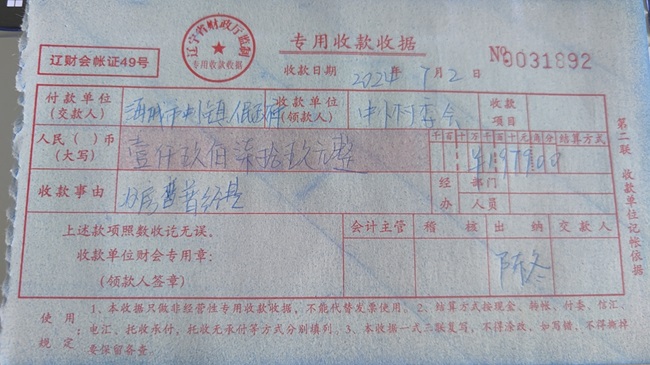 辽宁省财政厅监制
专用收款收据
专用收款收据
辽财会帐证49号
№0031892
收款日期 2024年7月2日
付款单位
(交款人)
收款单位
(领款人)
村委会
收款
项目
人民( )币
(大写)
壹仟玖佰柒拾玖元整
千百十万千百十元角分
结算方式
¥197900
收款事由
经 部门
办 人员
上述款项照数收讫无误。
收款单位财会专用章:
(领款人签章)
会计主管
稽核
出纳
交款人
第二联 收款单位记帐依据
使用规定:
1、本收据只做非经营性专用收款收据,不能代替发票使用。2、结算方式按现金、转帐、付委、信汇、
电汇、托收承付、托收无承付等方式分别填列。3、本收据一式二联复写,不得涂改,如写错,不得撕掉
要保留备查。